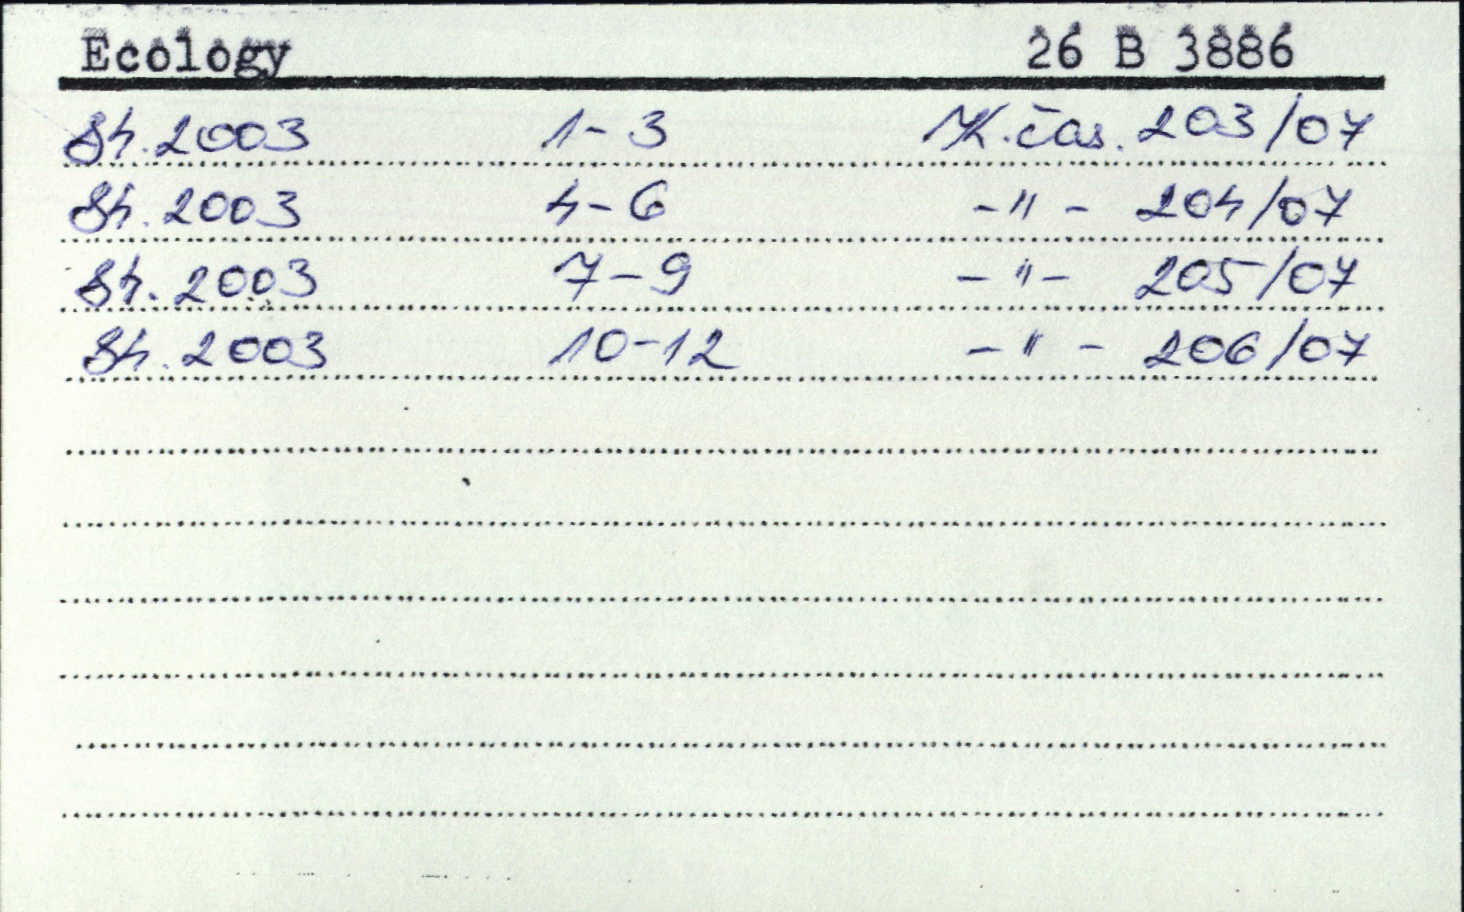 Ecology 26 B 3886
84. 2003 1-3 K. čas. 203/07
84. 2003 4-6 -"- 204/07
84. 2003 7-9 -"- 205/07
84. 2003 10-12 -"- 206/07